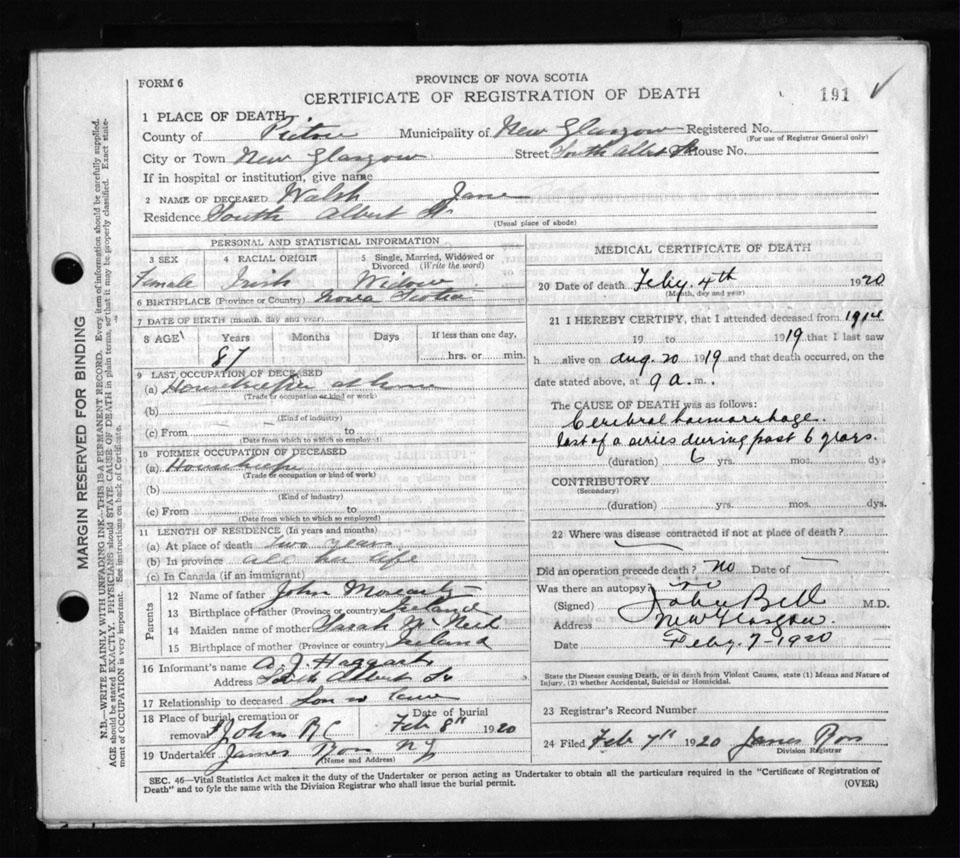 FORM 6
PROVINCE OF NOVA SCOTIA
CERTIFICATE OF REGISTRATION OF DEATH
191
1 PLACE OF DEATH
County of Pictou Municipality of New Glasgow Registered No.
(For use of Registrar General only)
City or Town New Glasgow Street South Albert St House No.
If in hospital or institution, give name
2 NAME OF DECEASED Walsh Jane
Residence South Albert St.
(Usual place of abode)
MARGIN RESERVED FOR BINDING
N.B.—WRITE PLAINLY WITH UNFADING INK—THIS IS A PERMANENT RECORD. Every item of information should be carefully supplied.
AGE should be stated EXACTLY. PHYSICIANS should STATE CAUSE OF DEATH in plain terms, so that it may be properly classified. Exact state-
ment of OCCUPATION is very important. See instructions on back of Certificate.
PERSONAL AND STATISTICAL INFORMATION
3 SEX 4 RACIAL ORIGIN 5 Single, Married, Widowed or
Divorced (Write the word)
Female Irish Widow
6 BIRTHPLACE (Province or Country) Nova Scotia
7 DATE OF BIRTH (month, day and year)
8 AGE Years Months Days If less than one day,
87 hrs. or min.
9 LAST OCCUPATION OF DECEASED
(a) Housekeeper at home
(Trade or occupation or kind or work)
(b)
(Kind of industry)
(c) From to
(Date from which to which so employed)
10 FORMER OCCUPATION OF DECEASED
(a)
(Trade or occupation or kind of work)
(b)
(Kind of industry)
(c) From to
(Date from which to which so employed)
11 LENGTH OF RESIDENCE (In years and months)
(a) At place of death two years
(b) In province all her life
(c) In Canada (if an immigrant)
Parents
12 Name of father John Moriarty
13 Birthplace of father (Province or country) Ireland
14 Maiden name of mother Sarah McNeil
15 Birthplace of mother (Province or country) Ireland
16 Informant's name A. J. Haggart
Address South Albert St
17 Relationship to deceased Son in law
18 Place of burial, cremation or Date of burial
removal St Johns R C Feb 8th 1920
19 Undertaker James Ross N G
(Name and Address)
MEDICAL CERTIFICATE OF DEATH
20 Date of death Feby. 4th 1920
(Month, day and year)
21 I HEREBY CERTIFY, that I attended deceased from 1914
19 to 1919 that I last saw
h alive on Aug. 20 1919 and that death occurred, on the
date stated above, at 9 a. m.
The CAUSE OF DEATH was as follows:
Cerebral haemorrhage.
last of a series during past 6 years.
(duration) 6 yrs. mos. dys
CONTRIBUTORY
(Secondary)
(duration) yrs. mos. dys.
22 Where was disease contracted if not at place of death?
Did an operation precede death? no Date of
Was there an autopsy? no
(Signed) John Bell M.D.
Address New Glasgow
Date Feby. 7-1920
State the Disease causing Death, or in death from Violent Causes, state (1) Means and Nature of
Injury, (2) whether Accidental, Suicidal or Homicidal.
23 Registrar's Record Number
24 Filed Feb 7th 1920 James Ross
Division Registrar
SEC. 46—Vital Statistics Act makes it the duty of the Undertaker or person acting as Undertaker to obtain all the particulars required in the "Certificate of Registration of
Death" and to fyle the same with the Division Registrar who shall issue the burial permit. (OVER)